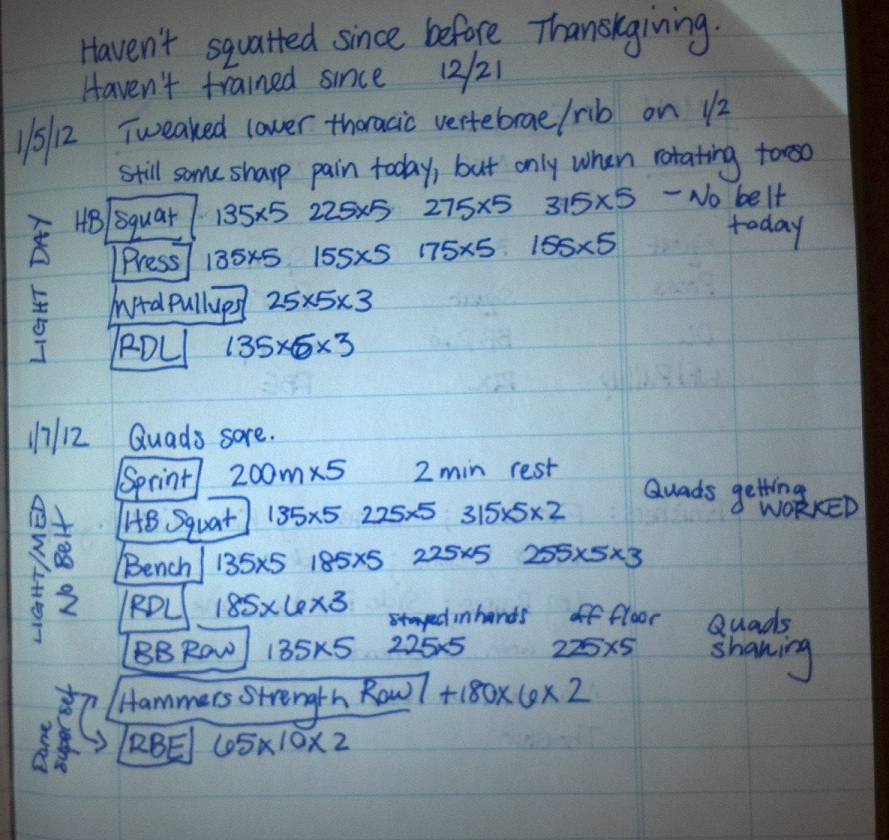 Haven't squatted since before Thanskgiving.
Haven't trained since 12/21
1/5/12 Tweaked lower thoracic vertebrae/rib on 1/2
Still some sharp pain today, but only when rotating torso
LIGHT DAY
HB Squat 135x5 225x5 275x5 315x5 - No belt today
Press 135x5 155x5 175x5 155x5
Wtd Pullups 25x5x3
RDL 135x6x3
1/7/12 Quads sore.
LIGHT/MED No Belt
Sprint 200m x 5 2 min rest
HB Squat 135x5 225x5 315x5x2 Quads getting WORKED
Bench 135x5 185x5 225x5 255x5x3
RDL 185x6x3
stayed in hands off floor
BB Row 135x5 225x5 225x5 Quads shaking
Done super set
Hammers Strength Row +180x6x2
RBE 65x10x2